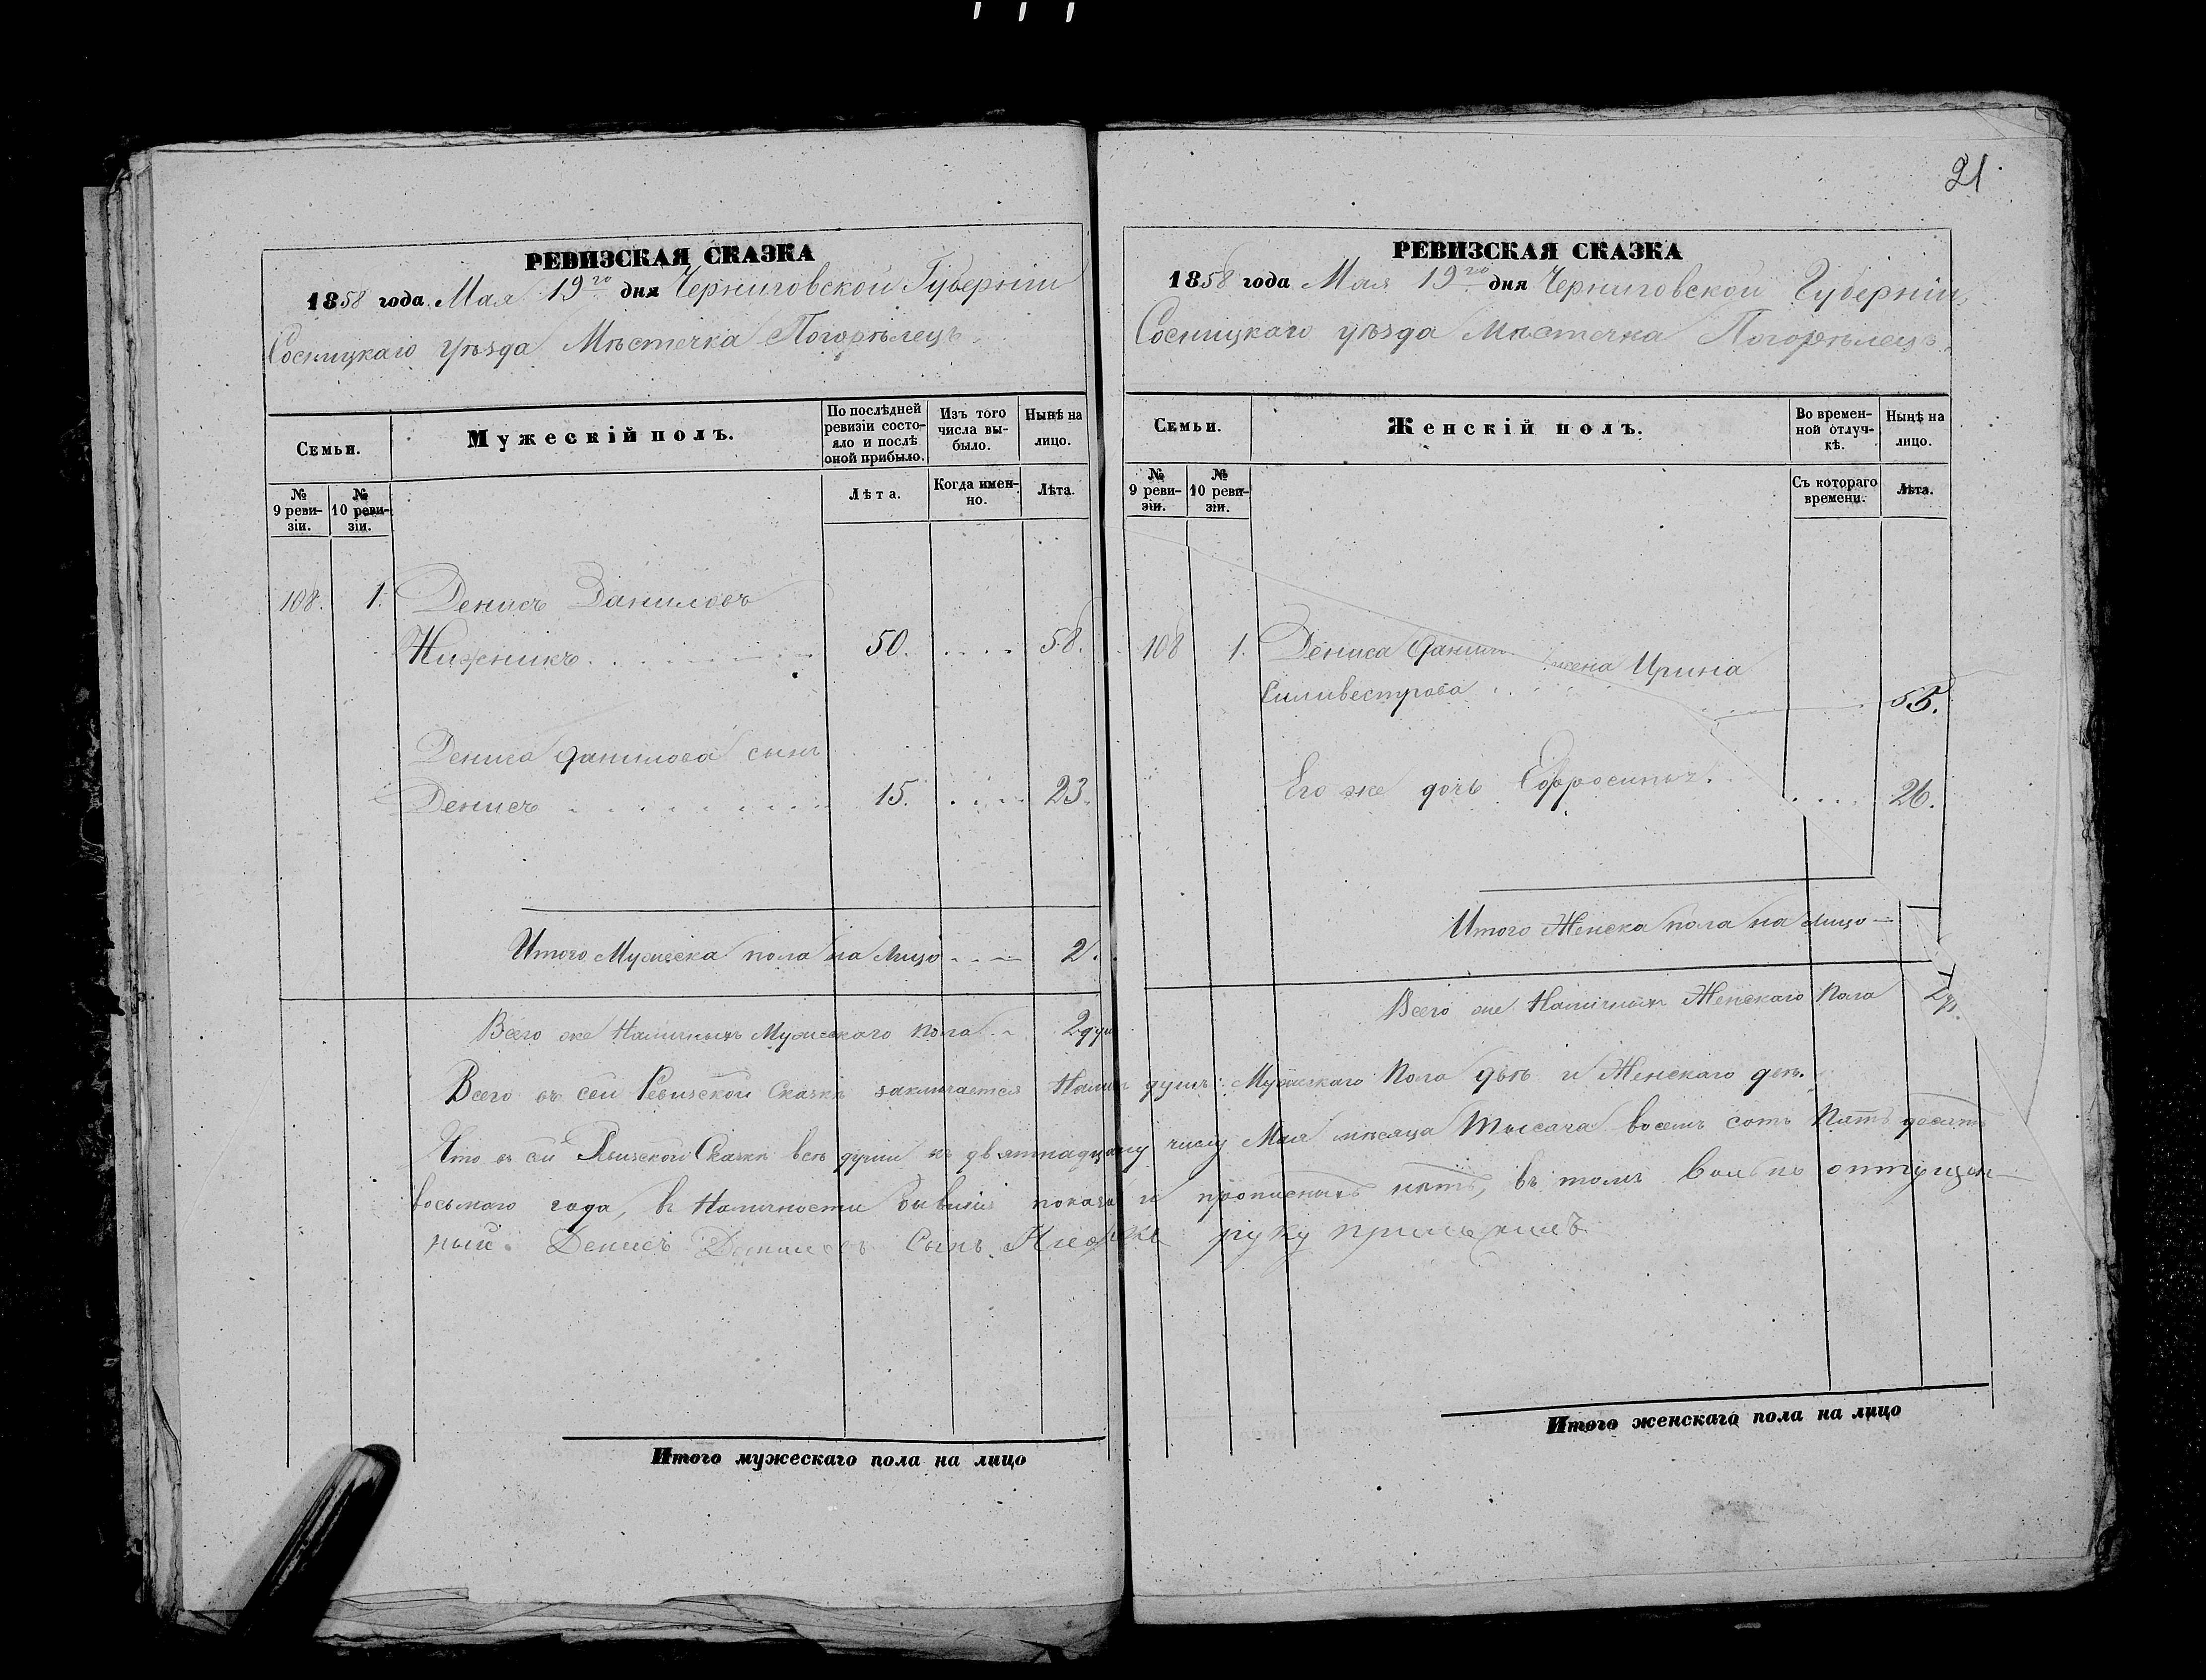 21
РЕВИЗСКАЯ СКАЗКА
1858 года Мая 19го дня Черниговской Губерніи
Сосницкаго уѣзда Мѣстечка Погорѣлецъ
Семьи.
Мужескій полъ.
По послѣдней ревизіи состояло и послѣ оной прибыло.
Изъ того числа выбыло.
Нынѣ на лицо.
№ 9 ревизіи.
№ 10 ревизіи.
Лѣта.
Когда именно.
Лѣта.
108. 1. Денисъ Даниловъ
Нижникъ 50. 58.
Дениса Данилова сынъ
Денисъ 15. 23.
Итого Мужеска пола на лицо 2.
Всего же Наличныхъ Мужескаго пола 2 душ
РЕВИЗСКАЯ СКАЗКА
1858 года Мая 19го дня Черниговской Губерніи,
Сосницкаго уѣзда Мѣстечка Погорѣлецъ.
Семьи.
Женскій полъ.
Во временной отлучкѣ.
Нынѣ на лицо.
№ 9 ревизіи.
№ 10 ревизіи.
Съ котораго времени.
Лѣта.
108 1. Дениса жена Ирина
Силивестрова 55.
Его же дочь 26.
Итого Женска пола на лицо
Всего же Наличныхъ Женскаго Пола
Всего въ сей Ревизской Сказкѣ заключается душъ: Мужескаго Пола двѣ и Женскаго двѣ.
Что въ сей Ревизской Сказкѣ всѣ души къ девятнадцатому числу Мая мѣсяца Тысяча восемь сотъ Пятьдесятъ
восьмаго года, въ Наличности и прописныхъ нѣтъ, въ томъ
ный Денисъ Сынъ руку приложилъ
Итого мужескаго пола на лицо
Итого женскаго пола на лицо